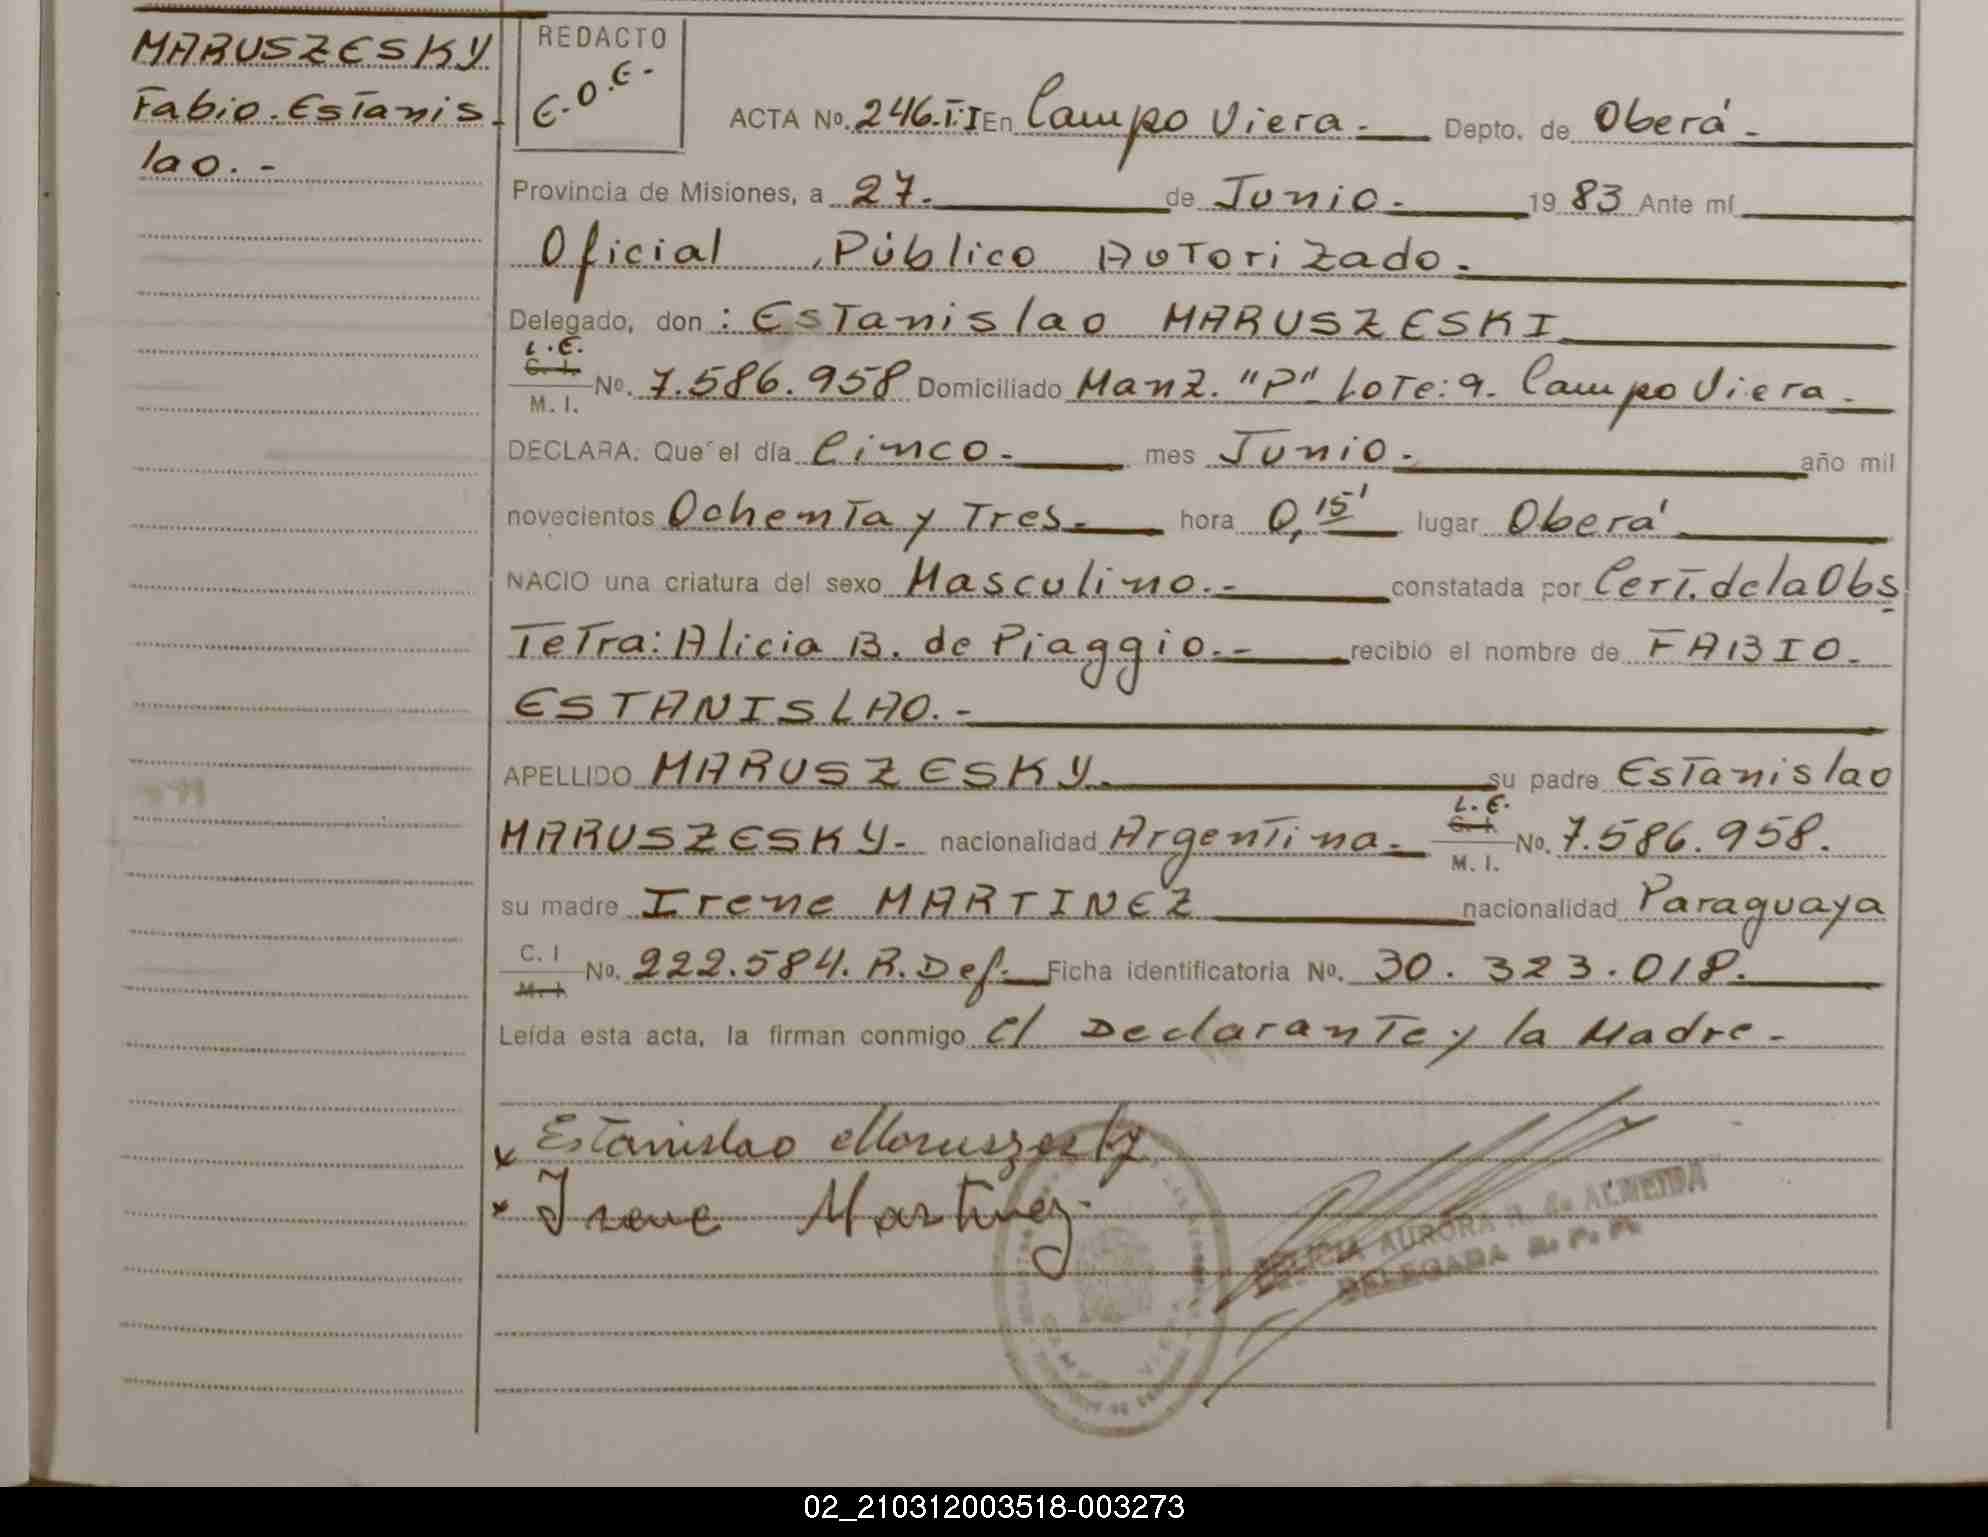 MARUSZESKY
Fabio. Estanis-
lao.-
REDACTO
E.O.E.-
ACTA Nº. 246.T.I En Campo Viera.- Depto. de Oberá.-
Provincia de Misiones, a 27.- de Junio.- 1983 Ante mí
Oficial Público Autorizado.-
Delegado, don: Estanislao MARUSZESKI
L.E.
C. I.
M. I. Nº. 7.586.958 Domiciliado Manz. "P" Lote: 9. Campo Viera.-
DECLARA: Que el día Cinco.- mes Junio.- año mil
novecientos Ochenta y Tres.- hora 0,15' lugar Oberá
NACIO una criatura del sexo Masculino.- constatada por Cert. de la Obs
Tetra: Alicia B. de Piaggio.- recibió el nombre de FABIO.
ESTANISLAO.-
APELLIDO MARUSZESKY.- su padre Estanislao
MARUSZESKY.- nacionalidad Argentina.- L.E.
C. I.
M. I. Nº. 7.586.958.
su madre Irene MARTINEZ nacionalidad Paraguaya
C. I
M. I Nº. 222.584. R. Def.- Ficha identificatoria Nº. 30.323.018.
Leída esta acta, la firman conmigo el Declarante y la Madre.-
x Estanislao Maruszesky
x Irene Martinez
AURORA de ALMEIDA
DELEGADA R. P. P.
CAMPO VIERA
02_210312003518-003273